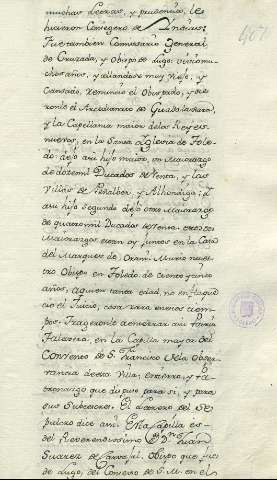 muchas letras, y prudencia, le
hicieron Consegero de Indias:
Fue tambien Comisario General
de Cruzada, y Obispo de Lugo: vivio mu-
chos años, y allandose muy viejo, y
Cansado, renuncio el Obispado, y die
ronle el Arcedianato de Guadalaxara,
y la Capellania maior de los Reyes
nuevos, en la Santa Iglesia de Tole
do. dejo a su hijo maior, un Maiorazgo
de doze mil Ducados de renta, y las
Villas de Peñalber, y Alhondiga: à
su hijo segundo dejo otro Maiorazgo
de quatro mil Ducados de renta. estos dos
Maiorazgos estan oy juntos en la Casa
del Marques de Orani. Murio nuestro
Obispo en Toledo de ciento y un
años, aquien tanta edad, no en flaque
cio el Juicio, cosa rara en estos tiem
pos. Trageronle a enterrar a su patria
Talavera, en la Capilla mayor del
Convento de S. Francisco de la Obser
vancia de esta Villa, entierro, y Pa-
tronazgo que dispuso para si, y para
sus Subcesores. El letrero del se
pulcro dice asi. Esta Capilla es
del Reverendissimo Sr. Dn. Juan
Suarez de Carvajal, Obispo que fue
de Lugo, del Consejo de S. M. en el
467